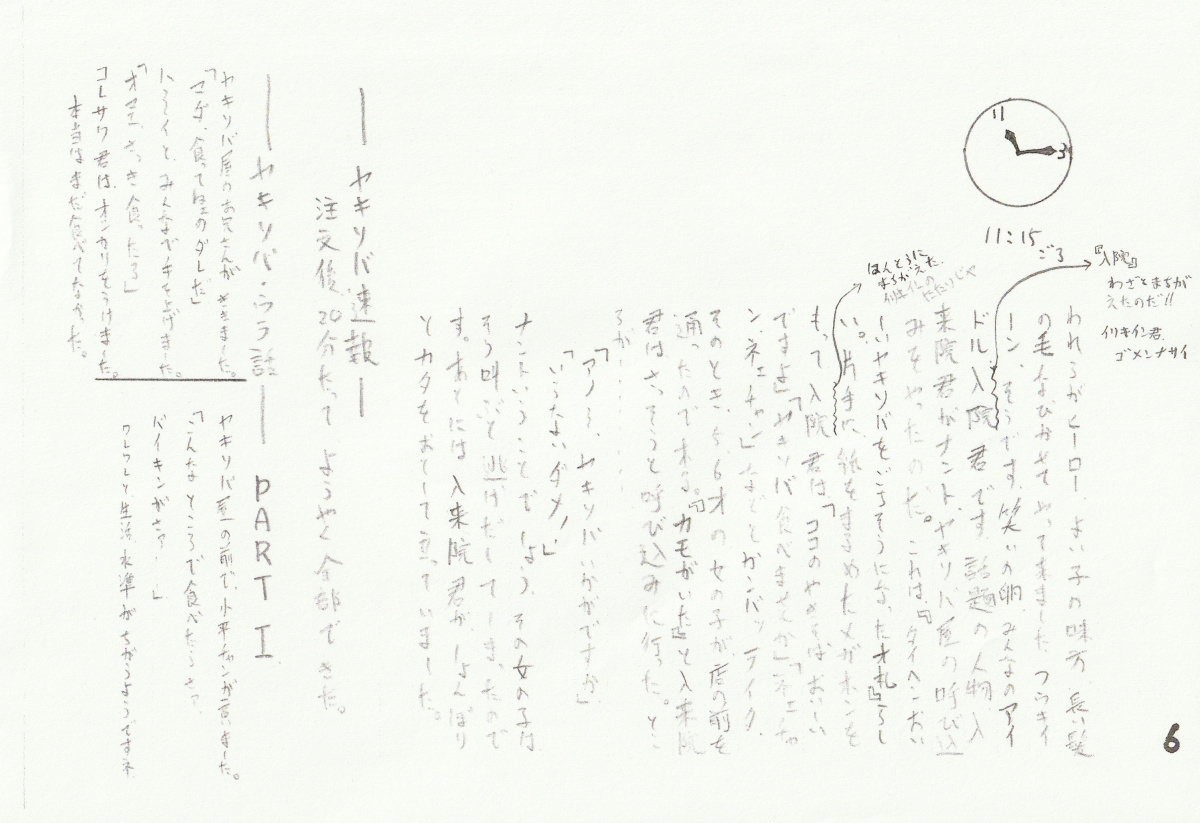 6
11
3
11:15
ごろ
『入院』
わざとまちが
えたのだ!!
イリキイン君.
ゴメンナサイ
ほんとうに
まちがえた.
われるがヒーロー よい子の味方 長い髪
の毛なびかせてやって来ました つうキイ
ーン、そうです。笑いの卵、みんなのアイ
ドル、入院君です。話題の人物 入
来院君がナント、ヤキソバ屋の呼び込
みをやったのだ。これは、『タイヘンおい
しいヤキソバをごちそうになったオ礼』らし
い。片手に、紙をまるめたメガホンを
もって入院君は、「ココのやきそばおいし
いですよ」「ヤキソバ食べませんか」「ネエチャ
ン、ネエチャン」などとガンバッテイタ.
そのとき、5、6才の女の子が、店の前を
通ったので来る。『カモがいた』と入来院
君はさっそうと呼び込みに行った。とこ
ろが・・・・・・
「アノう、ヤキソバいかがですか」
「いらないダメ!」
ナントいうことでしょう。その女の子は
そう叫ぶと逃げだしてしまったので
す。あとには入来院君が、しょんぼり
とカタをおとして立っていました。
― ヤキソバ速報 ―
注文後、20分たって ようやく全部できた。
― ヤキソバ・ウラ話 ― PART I.
ヤキソバ屋のお兄さんがききました。
「マダ、食ってねェのダレだ」
ハライと、みんなで手を上げました。
「オマエ、さっき食ったろ」
コレサワ君は、オシカリをうけました。
本当はまだ食べてなかった。
ヤキソバ屋の前で、小平チャンが言いました。
「こんなところで食べたらさァ、
バイキンがさァ・・」
ワレワレと、生活水準がちがうようですネ.